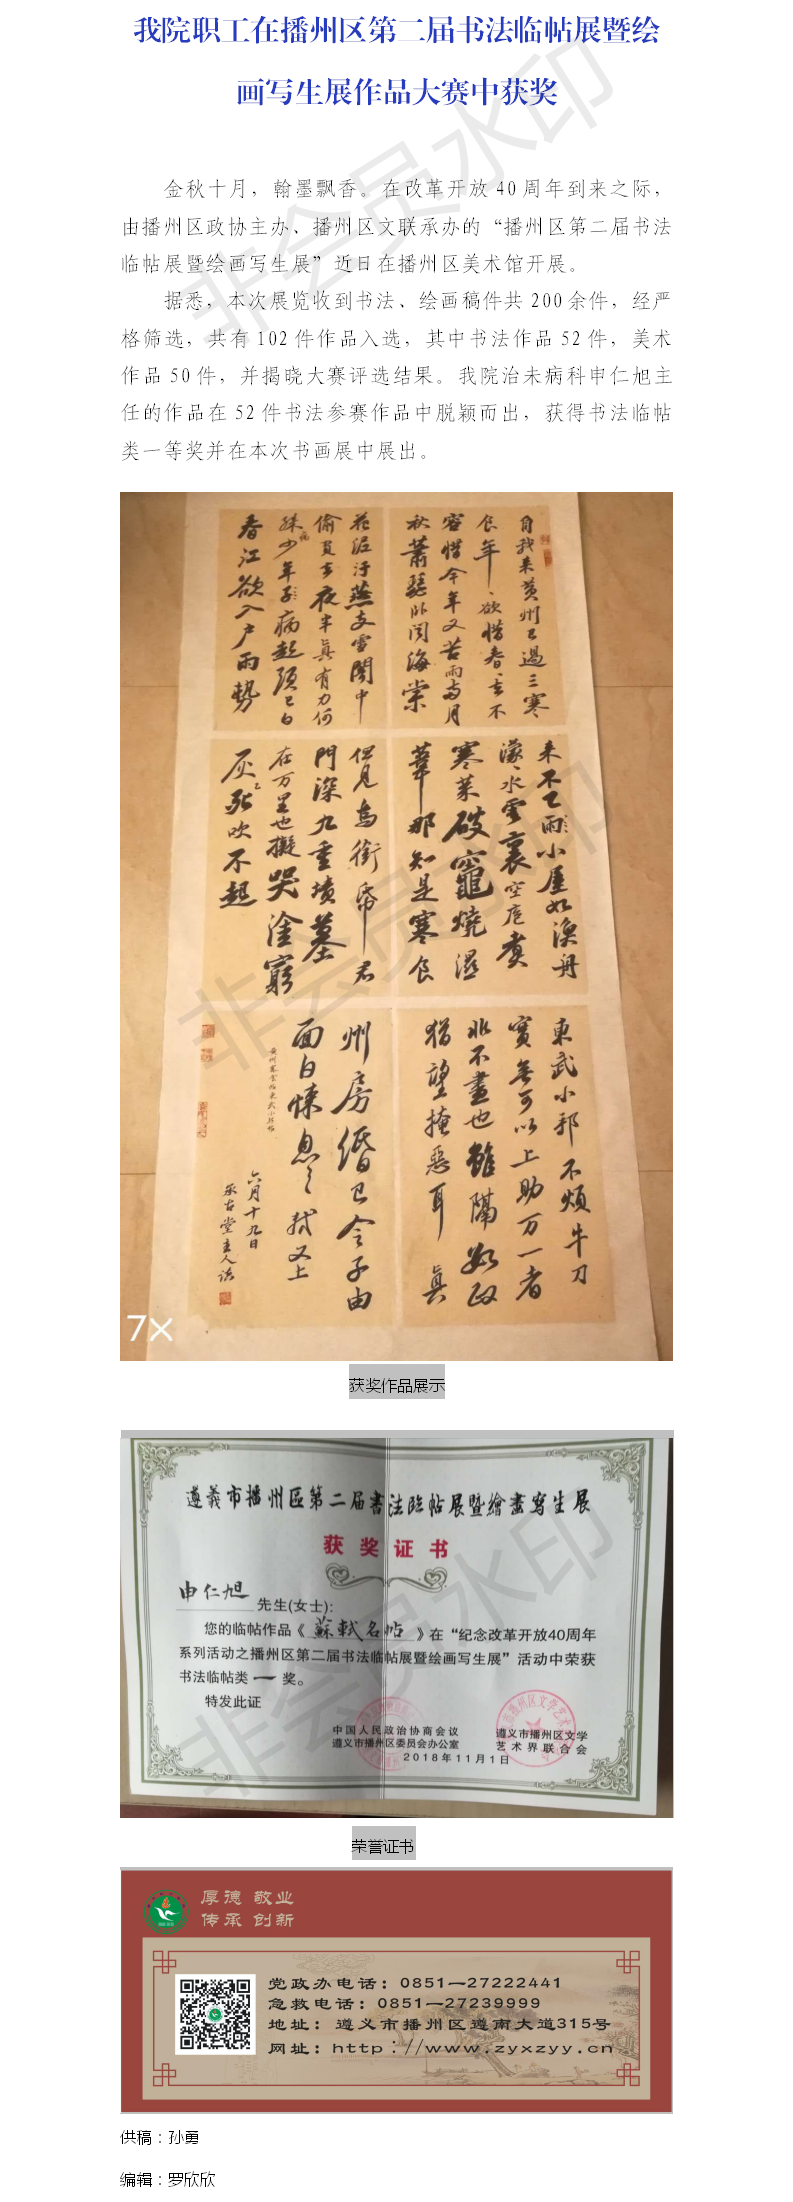 我院职工在播州区第二届书法临帖展暨绘
画写生展作品大赛中获奖
金秋十月，翰墨飘香。在改革开放 40 周年到来之际，
由播州区政协主办、播州区文联承办的“播州区第二届书法
临帖展暨绘画写生展”近日在播州区美术馆开展。
据悉，本次展览收到书法、绘画稿件共 200 余件，经严
格筛选，共有 102 件作品入选，其中书法作品 52 件，美术
作品 50 件，并揭晓大赛评选结果。我院治未病科申仁旭主
任的作品在 52 件书法参赛作品中脱颖而出，获得书法临帖
类一等奖并在本次书画展中展出。
自我来黄州已過三寒
食年、欲惜春、去不
容惜今年又苦雨两月
秋蕭瑟卧闻海棠
花泥汙燕支雪闇中
偷負去夜半真有力何
殊少年子病起頭已白
春江欲入户雨勢
来不已雨小屋如漁舟
濛、水雲裏空庖煑
寒菜破竈燒濕
葦那知是寒食
但見烏銜帋君
門深九重墳墓
在万里也擬哭塗窮
灰死吹不起
東武小邦不煩牛刀
實無可以上助万一者
非不盡也雖隔數政
猶望掩惡耳真
州房緡已令子由
面白悚息、軾又上
六月十九日
7×
获奖作品展示
遵義市播州區第二届書法臨帖展暨繪畫寫生展
获奖证书
申仁旭 先生(女士):
您的临帖作品《蘇軾名帖》在“纪念改革开放40周年
系列活动之播州区第二届书法临帖展暨绘画写生展”活动中荣获
书法临帖类 一 奖。
特发此证
中国人民政治协商会议
遵义市播州区委员会办公室
遵义市播州区文学
艺术界联合会
2018年11月1日
荣誉证书
厚德 敬业
传承 创新
党政办电话：0851—27222441
急救电话：0851—27239999
地址：遵义市播州区遵南大道315号
网址：http://www.zyxzyy.cn
供稿：孙勇
编辑：罗欣欣
非会员水印
非会员水印
非会员水印